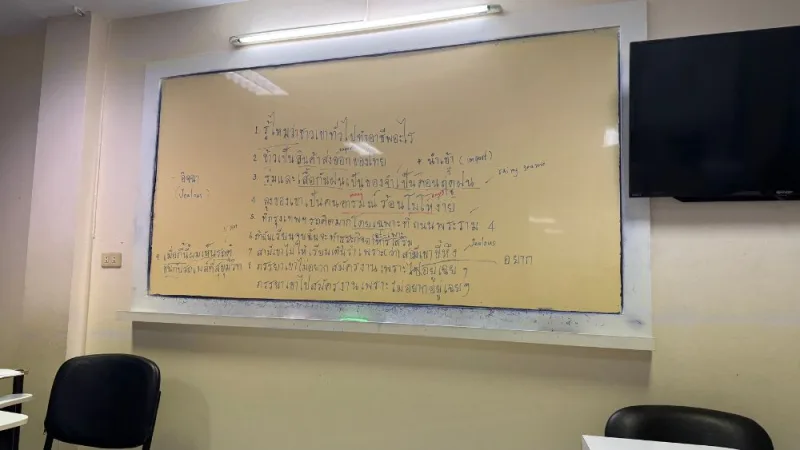 1. รู้ไหมว่าชาวเขาทั่วไปทำอาชีพอะไร
2. ข้าวเป็นสินค้าส่งออกของไทย * นำเข้า (import)
3. ร่มและเสื้อกันฝนเป็นของจำเป็นตอนฤดูฝน
4. ลุงของเขาเป็นคนอารมณ์ร้อนโมโหง่าย
5. ที่กรุงเทพฯรถติดมากโดยเฉพาะที่ถนนพระราม 4
7. สามีเขาไม่ให้เรียนเต้นรำเพราะว่าสามีเขาขี้หึง
Jealous
อิจฉา
(Jealous)
8. ภรรยาเขาไม่อยากสมัครงานเพราะ อยู่เฉยๆ
ภรรยาเขาไปสมัครงานเพราะไม่อยากอยู่เฉยๆ